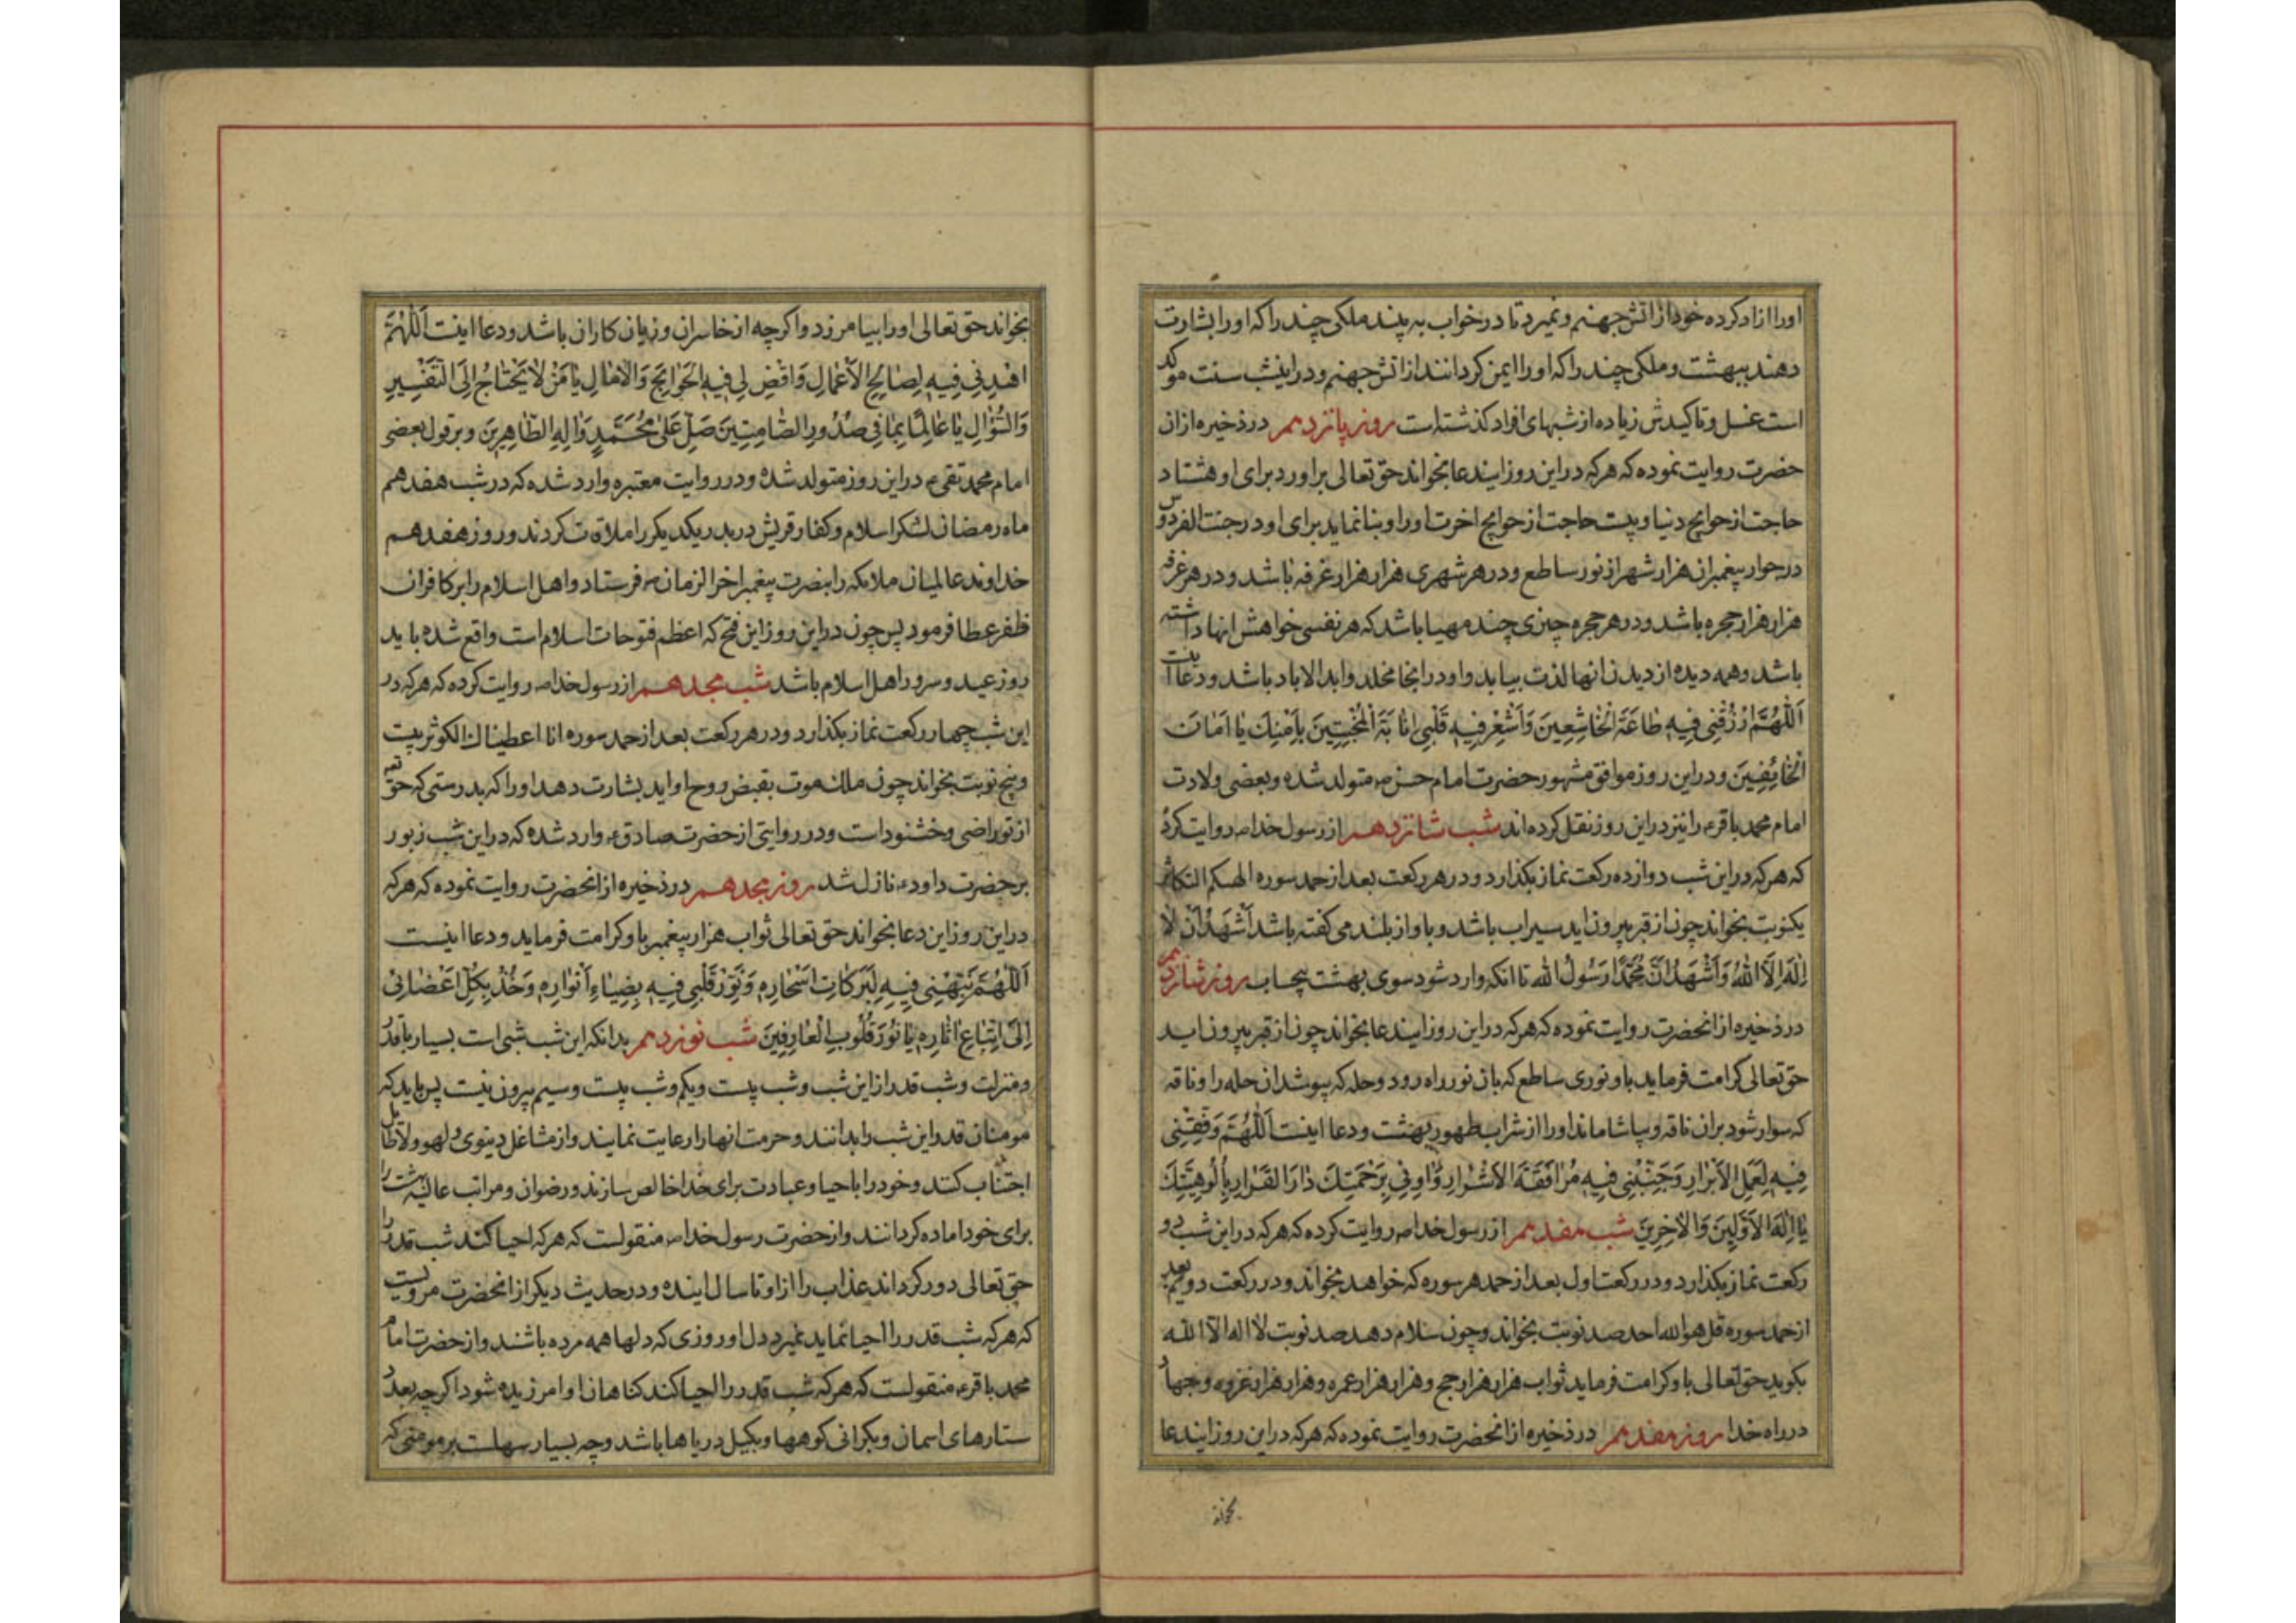 اورا ازاد کرده خود از اتش جهنم و نمیرد تا در خواب به پیند ملکی چند را که اورا بشارت
دهند ببهشت و ملکی چند را که اورا ایمن کردانند از اتش جهنم و در اینشب سنت موکد
است غسل و تاکیدش زیاده از شبهای افراد کذشته است روز پانزدهم در ذخیره از ان
حضرت روایت نموده که هرکه در این روز ایندعا بخواند حق تعالی براورد برای او هشتاد
حاجت از حوایج دنیا و پیست حاجت از حوایج اخرت و اورا بنا نماید برای او در جنت الفردوس
در جوار پیغمبران هزار شهر از نور ساطع و در هر شهری هزار هزار غرفه باشد و در هر غرفه
هزار هزار حجره باشد و در هر حجره چیزی چند مهیا باشد که هر نفسی خواهش انها داشته
باشد و همه دیده از دیدن انها لذت بیابد و او در انجا مخلد و ابد الاباد باشد و دعا اینست
اَللّٰهُمَّ ارْزُقْنِی فِیهِ طَاعَةَ الْخَاشِعِینَ وَاَشْعِرْ فِیهِ قَلْبِی اِنَابَةَ الْمُخْبِتِینَ بِاَمْنِكَ یَا اَمَانَ
الْخَائِفِینَ و در این روز موافق مشهور حضرت امام حسن ع متولد شده و بعضی ولادت
امام محمد باقر ع را نیز در این روز نقل کرده اند شب شانزدهم از رسول خدا ص روایت کرده
که هرکه در این شب دوازده رکعت نماز بکذارد و در هر رکعت بعد از حمد سوره الهیکم التکاثر
یکنوبت بخواند چون از قبر بیرون اید سیراب باشد و باواز بلند می کفته باشد اَشْهَدُ اَنْ لَا
اِلٰهَ اِلَّا اللّٰهُ وَاَشْهَدُ اَنَّ مُحَمَّدًا رَسُولُ اللّٰه تا انکه وارد شود سوی بهشت بیحساب روز شانزدهم
در ذخیره از انحضرت روایت نموده که هرکه در این روز ایندعا بخواند چون از قبر بیرون اید
حق تعالی کرامت فرماید باو نوری ساطع که بان نور راه رود و حله که بپوشد ان حله را و ناقه
که سوار شود بران ناقه و بیاشاماند اورا از شراب طهور بهشت و دعا اینست اَللّٰهُمَّ وَفِّقْنِی
فِیهِ لِعَمَلِ الْاَبْرَارِ وَجَنِّبْنِی فِیهِ مُرَافَقَةَ الْاَشْرَارِ وَاٰوِنِی بِرَحْمَتِكَ دَارَ القَرَارِ بِاُلُوهِیَّتِكَ
یَا اِلٰهَ الْاَوَّلِینَ وَالْاٰخِرِینَ شب هفدهم از رسول خدا ص روایت کرده که هرکه در این شب دو
رکعت نماز بکذارد و در رکعت اول بعد از حمد هر سوره که خواهد بخواند و در رکعت دویم بعد
از حمد سوره قل هو الله احد صد نوبت بخواند و چون سلام دهد صد نوبت لا اله الا الله
بکوید حق تعالی باو کرامت فرماید ثواب هزار هزار حج و هزار هزار عمره و هزار هزار غزوه و جهاد
در راه خدا روز هفدهم در ذخیره از انحضرت روایت نموده که هرکه در این روز ایندعا
بخواند
بخواند حق تعالی اورا بیامرزد و اکرچه از خاسران و زیان کاران باشد و دعا اینست اَللّٰهُمَّ
اهْدِنِی فِیهِ لِصَالِحِ الْاَعْمَالِ وَاقْضِ لِی فِیهِ الْحَوَایِجَ وَالْاٰمَالِ یَا مَنْ لَا یَحْتَاجُ اِلَی التَّفْسِیرِ
وَالسُّؤَالِ یَا عَالِمًا بِمَا فِی صُدُورِ الصَّامِتِینَ صَلِّ عَلٰی مُحَمَّدٍ وَاٰلِهِ الطَّاهِرِینَ و بر قول بعضی
امام محمد تقی ع در این روز متولد شده و در روایت معتبره وارد شده که در شب هفدهم
ماه رمضان لشکر اسلام و کفار قریش در بدر یکدیکر را ملاقات کردند و روز هفدهم
خداوند عالمیان ملائکه را بنصرت پیغمبر اخر الزمان ص فرستاد و اهل اسلام را بر کافران
ظفر عطا فرمود پس چون در این روز این فتح که اعظم فتوحات اسلام است واقع شده باید
روز عید و سرور اهل اسلام باشد شب هجدهم از رسول خدا ص روایت کرده که هرکه در
این شب چهار رکعت نماز بکذارد و در هر رکعت بعد از حمد سوره انا اعطیناك الکوثر بیست
و پنج نوبت بخواند چون ملك موت بقبض روح او اید بشارت دهد اورا که بدرستی که حق تعه
از تو راضی و خشنود است و در روایتی از حضرت صادق ع وارد شده که در این شب زبور
بر حضرت داود ع نازل شد روز هجدهم در ذخیره از انحضرت روایت نموده که هرکه
در این روز این دعا بخواند حق تعالی ثواب هزار پیغمبر باو کرامت فرماید و دعا اینست
اَللّٰهُمَّ نَبِّهْنِی فِیهِ لِبَرَکَاتِ اَسْحَارِهِ وَنَوِّرْ قَلْبِی فِیهِ بِضِیَاءِ اَنْوَارِهِ وَخُذْ بِکُلِّ اَعْضَائِی
اِلَی اتِّبَاعِ اٰثَارِهِ یَا نُورَ قُلُوبِ الْعَارِفِینَ شب نوزدهم بدانکه این شب شبی است بسیار باقدر
و منزلت و شب قدر از این شب و شب پیست و یکم و شب پیست و سیم بیرون نیست پس باید که
مومنان قدر این شب را بدانند و حرمت انها را رعایت نمایند و از مشاغل دینوی و لهو ولاطایل
اجتناب کنند و خود را باحیا و عبادت برای خدا خالص سازند و رضوان و مراتب عالیه بهشت را
برای خود اماده کردانند و از حضرت رسول خدا ص منقولست که هرکه احیا کند شب قدر را
حق تعالی دور کرداند عذاب را از او تا سال اینده و در حدیث دیکر از انحضرت مرویست
که هرکه شب قدر را احیا نماید نمیرد دل او روزی که دلها همه مرده باشند و از حضرت امام
محمد باقر ع منقولست که هرکه شب قدر را احیا کند کناهان او امرزیده شود اکرچه بعدد
ستارهای اسمان و بکرانی کوهها و بکیل دریاها باشد و چه بسیار سهلست بر مومنی که